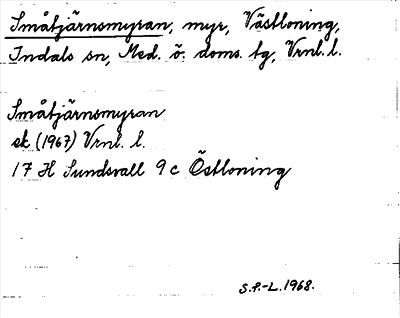 Småtjärnsmyran, myr, Västloning,
Indals sn, Med. ö. doms. tg, Vrnl. l.
Småtjärnsmyran
sk (1967) Vrnl. l.
17 H Sundsvall 9 c Östloning
S.P.-L. 1968.